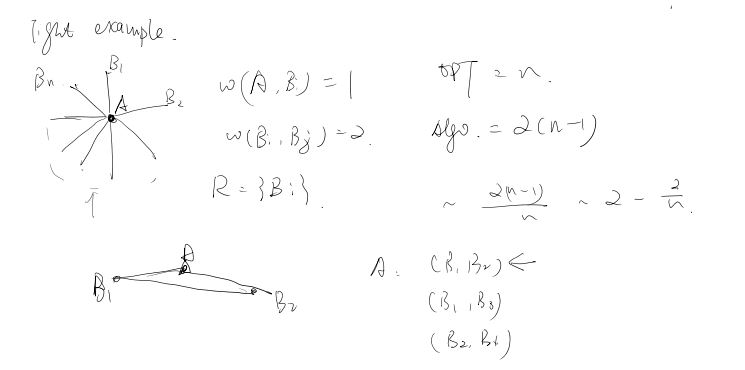 tight example.
B₁
Bn
A
B₂
w(A, Bi) = 1
w(Bi, Bj) = 2.
R = {Bi}.
OPT = n.
Algo. = 2(n-1)
~ 2(n-1)/n ~ 2 - 2/n.
A
B₁
B₂
A: (B₁, B₂) ←
(B₁, B₃)